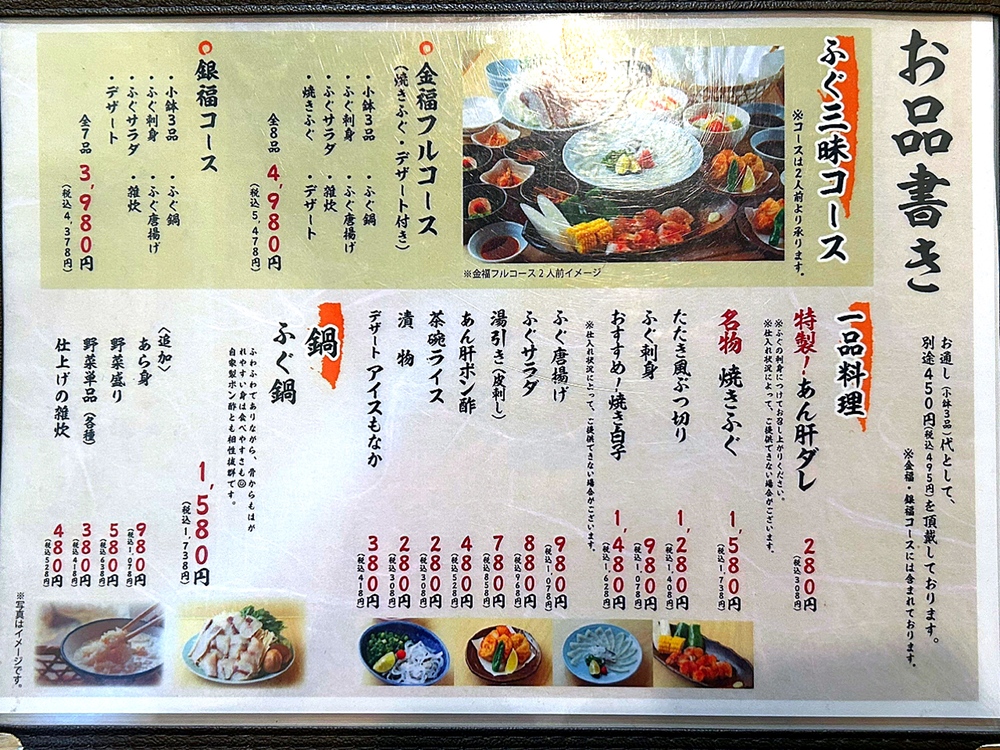 お品書き
お通し(小鉢3品)代として、
別途450円(税込495円)を頂戴しております。
※金福・銀福コースには含まれております。
ふぐ三昧コース
※コースは2人前より承ります。
※金福フルコース2人前イメージ
金福フルコース
(焼きふぐ・デザート付き)
・小鉢3品 ・ふぐ鍋
・ふぐ刺身 ・ふぐ唐揚げ
・ふぐサラダ ・雑炊
・焼きふぐ ・デザート
全8品 4,980円
(税込5,478円)
銀福コース
・小鉢3品 ・ふぐ鍋
・ふぐ刺身 ・ふぐ唐揚げ
・ふぐサラダ ・雑炊
・デザート
全7品 3,980円
(税込4,378円)
一品料理
特製!あん肝ダレ 280円
(税込308円)
※ふぐの刺身につけてお召し上がりください。
※仕入れ状況によって、ご提供できない場合がございます。
名物 焼きふぐ 1,580円
(税込1,738円)
たたき風ぶつ切り 1,280円
(税込1,408円)
ふぐ刺身 980円
(税込1,078円)
おすすめ!焼き白子 1,480円
(税込1,628円)
※仕入れ状況によって、ご提供できない場合がございます。
ふぐ唐揚げ 980円
(税込1,078円)
ふぐサラダ 880円
(税込968円)
湯引き(皮刺し) 780円
(税込858円)
あん肝ポン酢 480円
(税込528円)
茶碗ライス 280円
(税込308円)
漬物 280円
(税込308円)
デザート アイスもなか 380円
(税込418円)
鍋
ふぐ鍋 1,580円
(税込1,738円)
ふわふわでありながら、骨からもはが
れやすい身は食べやすさも◎
自家製ポン酢とも相性抜群です。
〈追加〉
あら身 980円
(税込1,078円)
野菜盛り 580円
(税込638円)
野菜単品(各種) 380円
(税込418円)
仕上げの雑炊 480円
(税込528円)
※写真はイメージです。